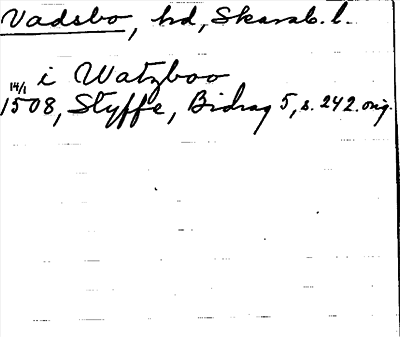 Vadsbo, hd, Skarab. l.
i Watzboo
14/1 1508, Styffe, Bidrag 5, s. 242. orig.